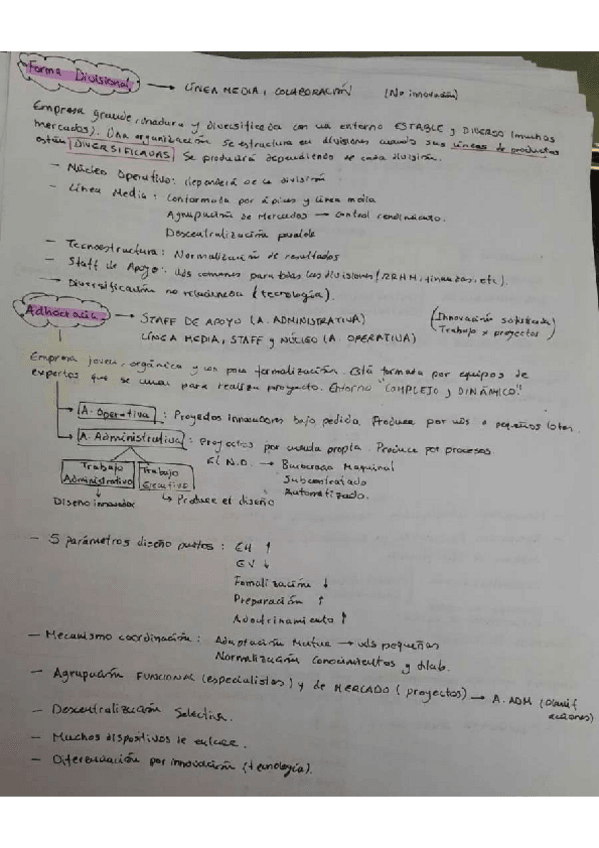 Forma Divisional → LÍNEA MEDIA, COLABORACIÓN (No innovación)
Empresa grande, madura y diversificada con un entorno ESTABLE y DIVERSO (muchos
mercados). Una organización se estructura en divisiones cuando sus líneas de productos
están DIVERSIFICADAS. Se producirá dependiendo de cada división.
- Núcleo Operativo: dependerá de la división
- Línea Media: Conformada por ápices y línea media
Agrupación de Mercados → control rendimiento.
Descentralización paralela
- Tecnoestructura: Normalización de resultados
- Staff de Apoyo: uds comunes para todas las divisiones (RRHH, finanzas, etc).
- Diversificación no relacionada (tecnología).
Adhocracia → STAFF DE APOYO (A. ADMINISTRATIVA)
LÍNEA MEDIA, STAFF y NÚCLEO (A. OPERATIVA)
(Innovación sofisticada)
(Trabajo x proyectos)
Empresa joven, orgánica y con poca formalización. Está formada por equipos de
expertos que se unen para realizar proyecto. Entorno "COMPLEJO y DINÁMICO".
→ A. Operativa: Proyectos innovadores bajo pedido. Produce por uds o pequeños lotes.
→ A. Administrativa: Proyectos por cuenta propia. Produce por procesos.
El N.O. → Burocracia Maquinal
Subcontratado
Automatizado.
Trabajo Administrativo
Trabajo Ejecutivo
Diseño innovador
↳ Produce el diseño
- 5 parámetros diseño puestos: EH ↑
EV ↓
Fomalización ↓
Preparación ↑
Adoctrinamiento ↑
- Mecanismo coordinación: Adaptación Mutua → uds pequeñas
Normalización conocimientos y hab.
- Agrupación FUNCIONAL (especialistas) y de MERCADO (proyectos) → A. ADM (planif
acciones)
- Descentralización Selectiva.
- Muchos dispositivos de enlace.
- Diferenciación por innovación (tecnología).